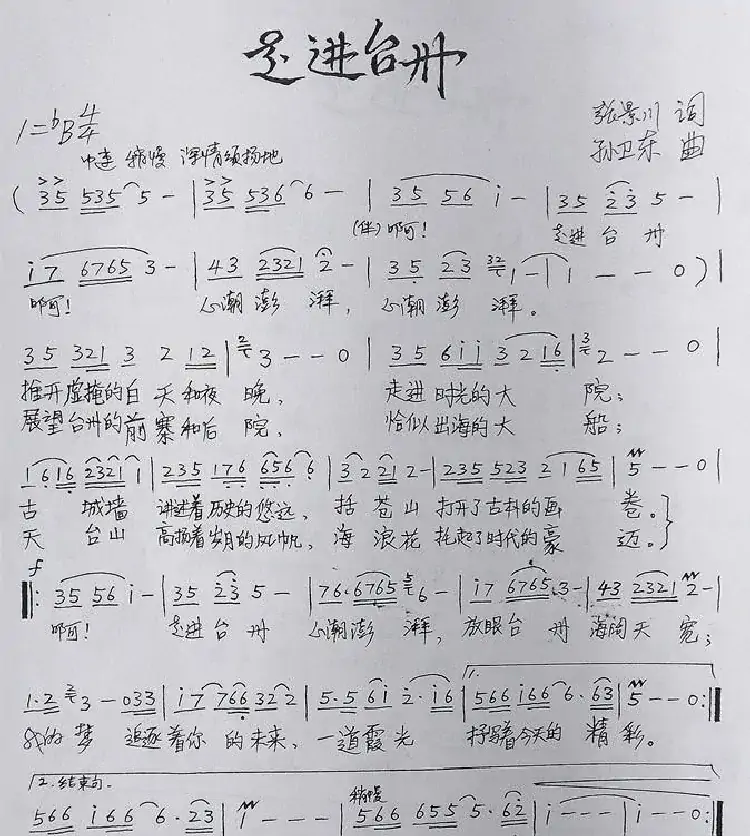 走进台州
张景川 词
1=♭B 4/4
孙卫东 曲
中速 稍慢 深情颂扬地
( 35 535 5 - | 35 536 6 - | 35 56 i - | 35 23 5 - |
(伴)啊! 走进台州
i7 6765 3 - | 43 2321 2 - | 35 23 1 - | 1 - - 0 ) |
啊! 心潮澎湃, 心潮澎湃。
35 321 3 2 12 | 3 - - 0 | 35 6ii 32 16 | 2 - - 0 |
推开虚掩的白天和夜晚, 走进时光的大院;
展望台州的前寨和后院, 恰似出海的大船;
1616 2321 1 | 235 176 656 6 | 32 21 2 - | 235 523 21 65 | 5 - - 0 |
古城墙 讲述着历史的悠远, 括苍山 打开了古朴的画卷。
天台山 高扬着岁月的风帆, 海浪花 托起了时代的豪迈。
f
‖: 35 56 i - | 35 23 5 - | 76·6765 6 - | i7 6765 3 - | 43 2321 2 - |
啊! 走进台州 心潮澎湃, 放眼台州 海阔天宽;
1·2 3 - 033 | i7 766 32 2 | 5·5 6i 2·i6 | 1. 566 i66 6·63 | 5 - - 0 :‖
梦 追逐着你的未来, 一道霞光 抒写着今天的精彩。
2.结束句。
稍慢
566 i66 6·23 | i - - - | 566 655 5·62 | i - - - | i - - 0 |